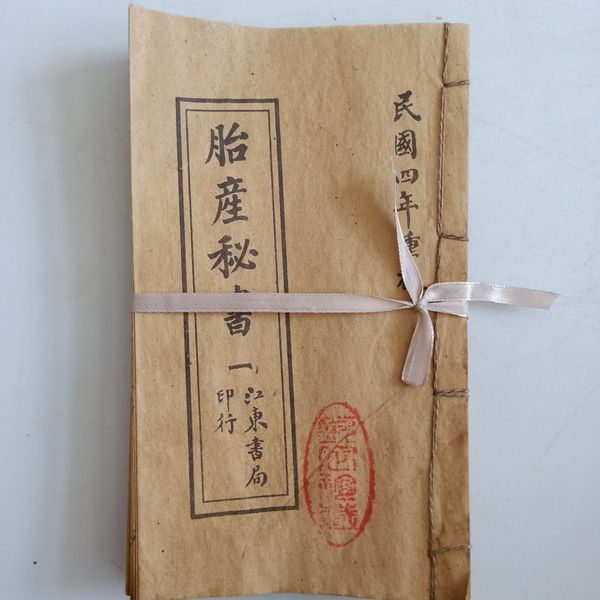 民國四年重
胎産秘書
一
江東書局
印行